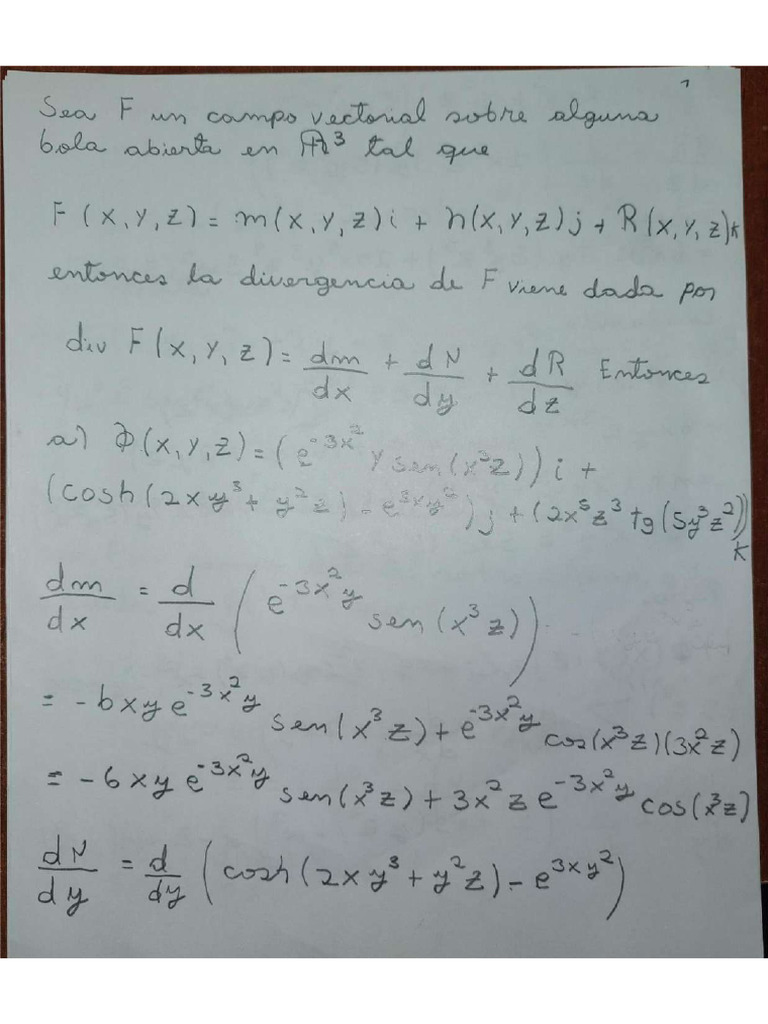 Sea F un campo vectorial sobre alguna
bola abierta en ℝ³ tal que
F(x,y,z) = m(x,y,z)i + n(x,y,z)j + R(x,y,z)k
entonces la divergencia de F viene dada por
div F(x,y,z) = dm/dx + dN/dy + dR/dz Entonces
a) Φ(x,y,z) = (e^{-3x²} y sen(x³z)) i +
(cosh(2xy³ + y²z) - e^{3xy²}) j + (2x⁵z³ tg(5y³z²)) k
dm/dx = d/dx (e^{-3x²y} sen(x³z))
= -6xy e^{-3x²y} sen(x³z) + e^{-3x²y} cos(x³z)(3x²z)
= -6xy e^{-3x²y} sen(x³z) + 3x²z e^{-3x²y} cos(x³z)
dN/dy = d/dy (cosh(2xy³ + y²z) - e^{3xy²})